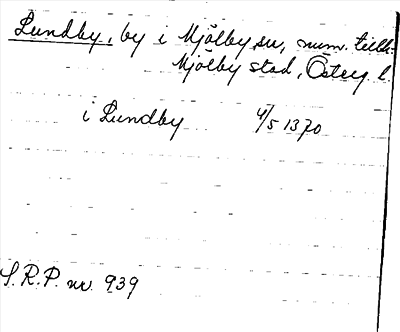 Lundby, by i Mjölby sn, num. tillh.
Mjölby stad, Österg l.
i Lundby 4/5 1370
S.R.P. nr. 939